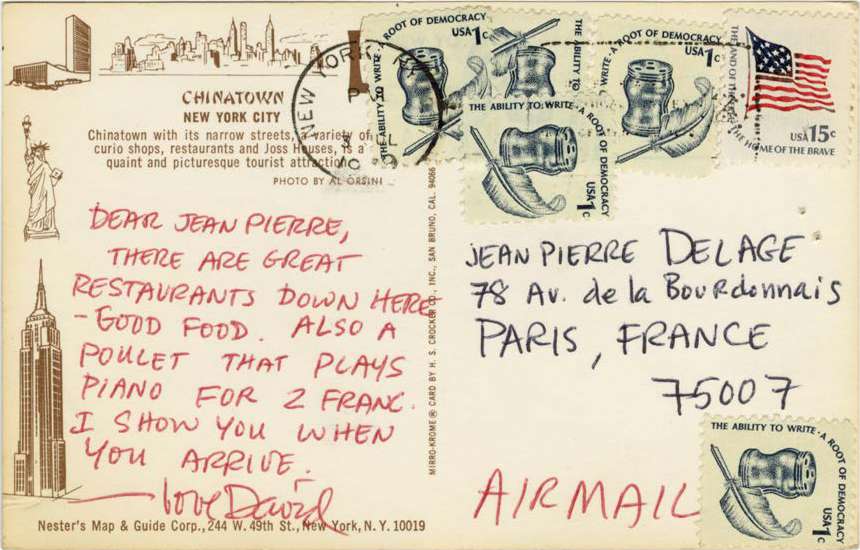 CHINATOWN
NEW YORK CITY
Chinatown with its narrow streets, variety of
curio shops, restaurants and Joss Houses, is a
quaint and picturesque tourist attraction.
PHOTO BY AL ORSINI
DEAR JEAN PIERRE,
THERE ARE GREAT
RESTAURANTS DOWN HERE
- GOOD FOOD. ALSO A
POULET THAT PLAYS
PIANO FOR 2 FRANC.
I SHOW YOU WHEN
YOU ARRIVE.
love David
Nester's Map & Guide Corp., 244 W. 49th St., New York, N.Y. 10019
MIRRO-KROME® CARD BY H. S. CROCKER CO., INC., SAN BRUNO, CAL. 94066
NEW YORK, NY
THE ABILITY TO WRITE · A ROOT OF DEMOCRACY
USA 1c
THE ABILITY TO
THE ABILITY TO WRITE · A ROOT OF DEMOCRACY
USA 1c
WRITE · A ROOT OF DEMOCRACY
USA 1c
THE LAND OF THE
THE HOME OF THE BRAVE
USA 15c
JEAN PIERRE DELAGE
78 Av. de la Bourdonnais
PARIS, FRANCE
75007
AIRMAIL
THE ABILITY TO WRITE · A ROOT OF DEMOCRACY
USA 1c